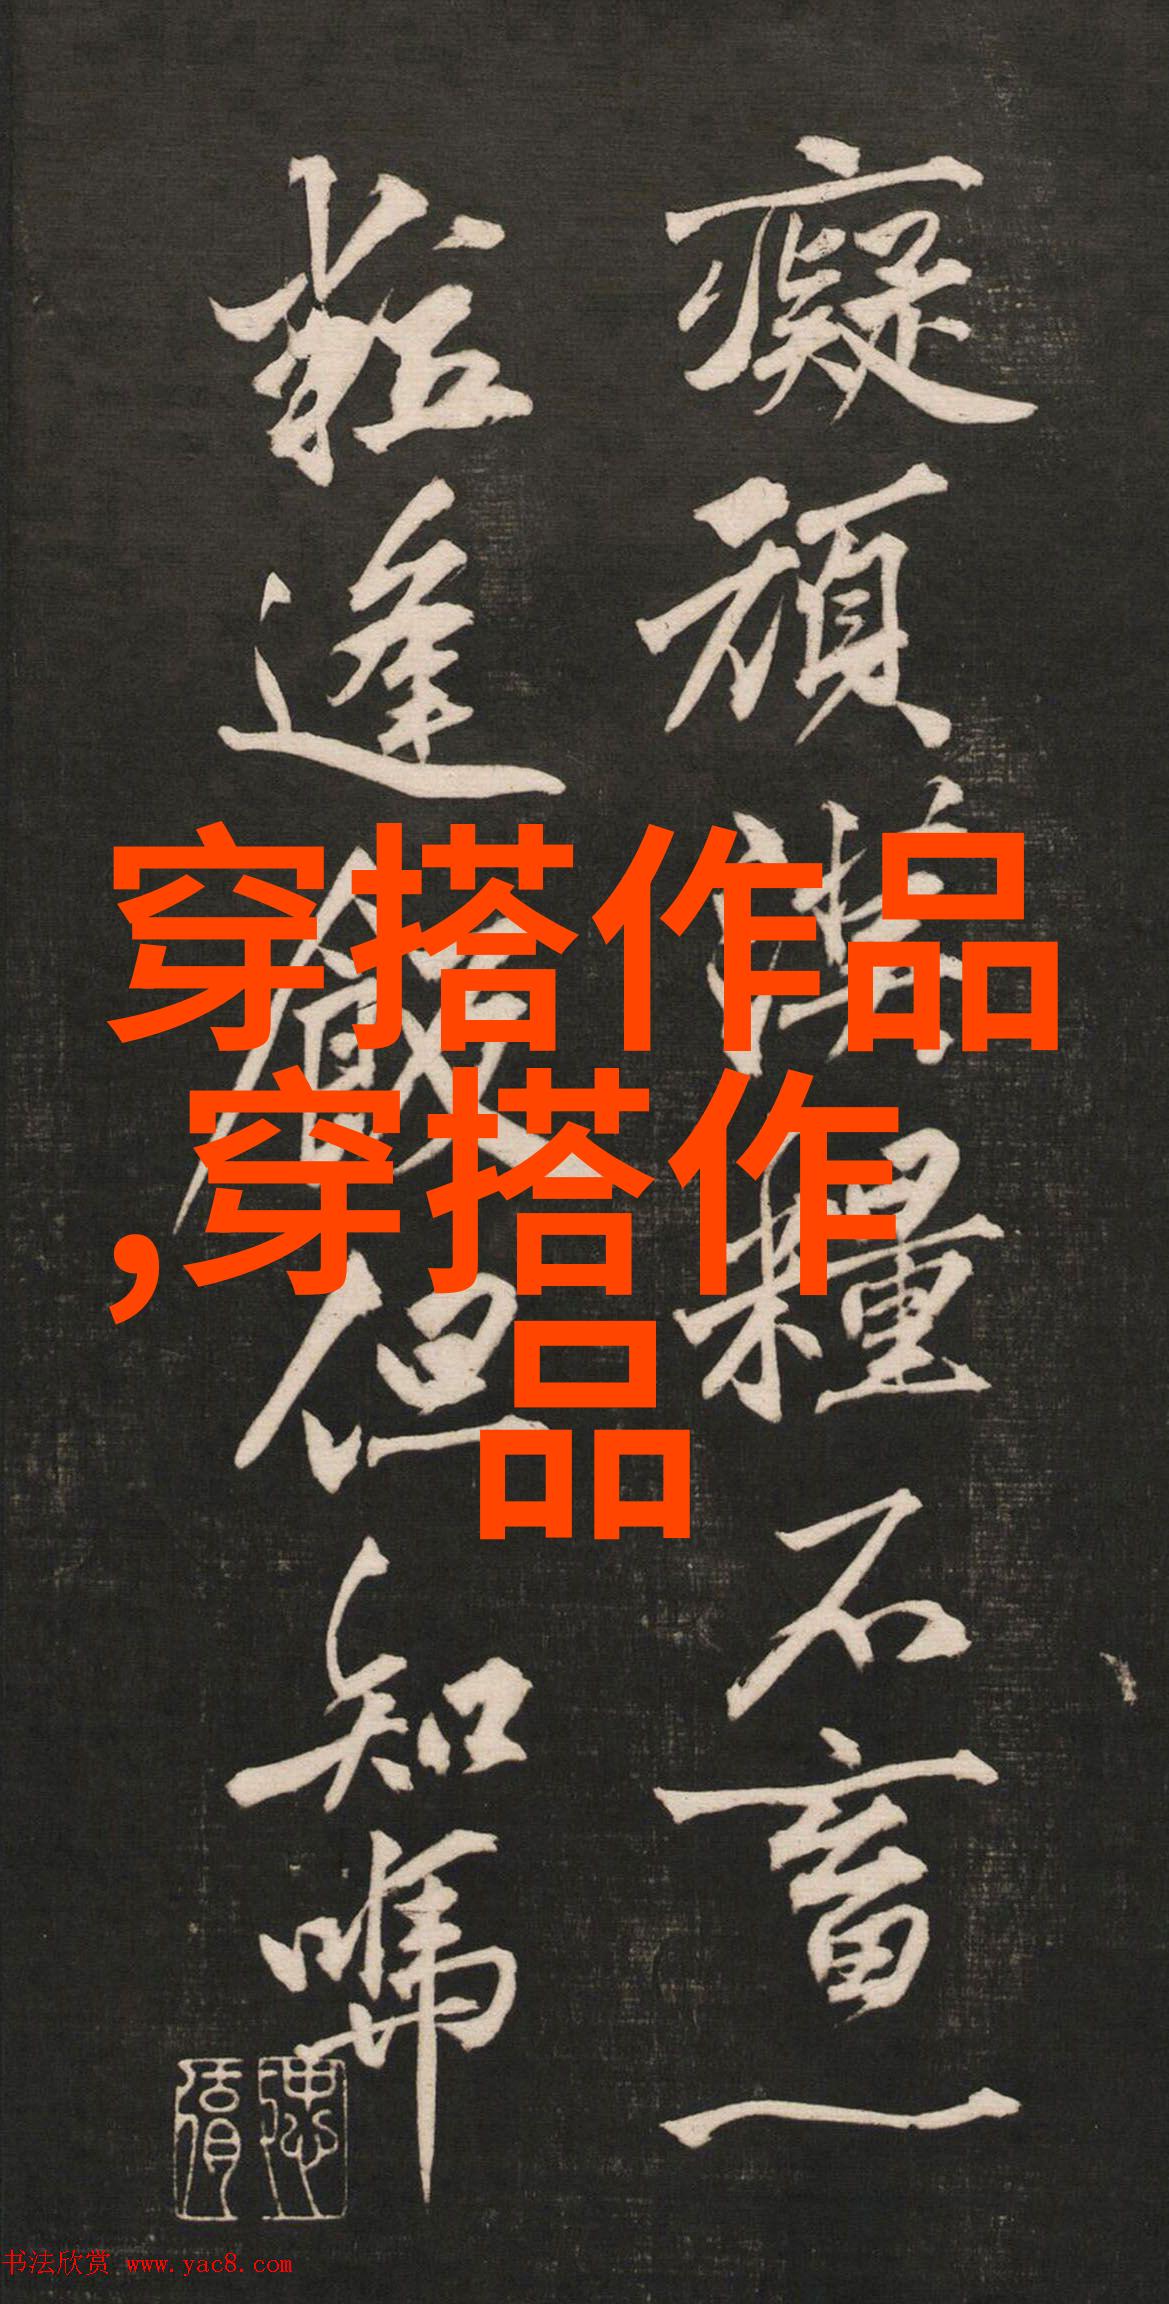 癡頑糧不畜一
粒逢飯但知
穿搭作品
,穿搭作
品
书法欣赏 www.yac8.com